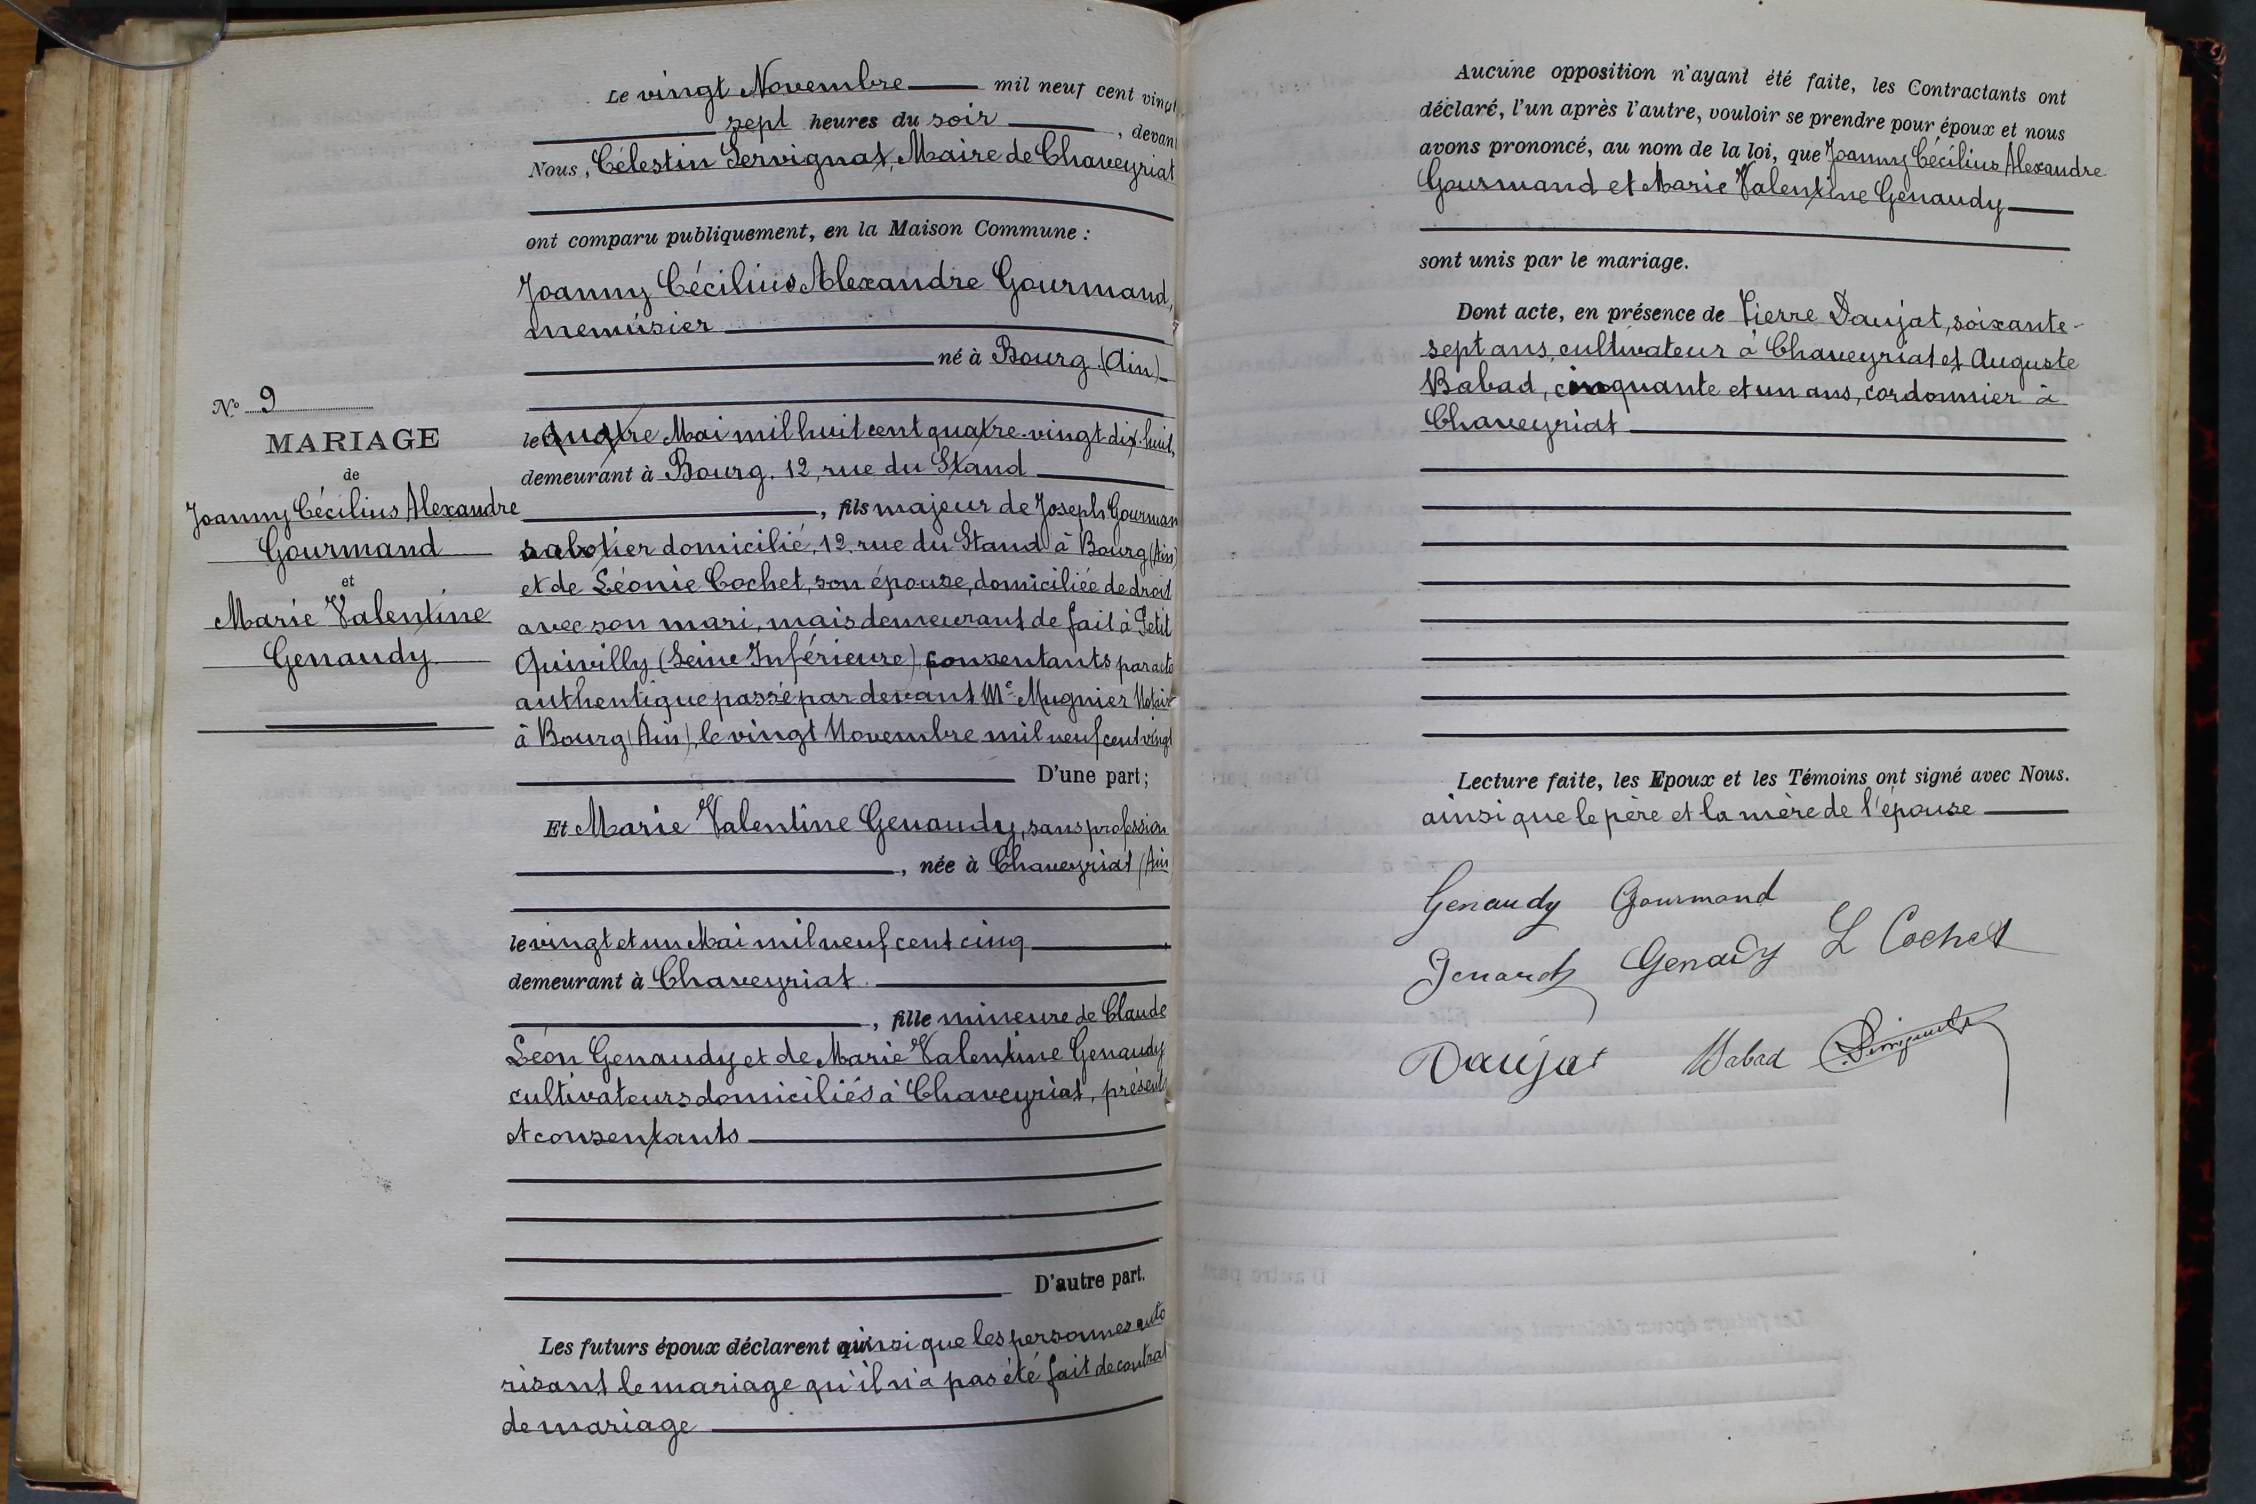 Le vingt Novembre mil neuf cent vingt
sept heures du soir, devant
Nous, Célestin Servignat, Maire de Chaveyriat
ont comparu publiquement, en la Maison Commune :
Joanny Cécilius Alexandre Gourmand,
menusier
né à Bourg (Ain)
le quatre Mai mil huit cent quatre-vingt dix-huit,
demeurant à Bourg, 12, rue du Stand
, fils majeur de Joseph Gourman
sabotier domicilié, 12, rue du Stand à Bourg (Ain)
et de Léonie Cochet, son épouse, domiciliée de droit
avec son mari, mais demeurant de fait à Petit
Quivilly (Seine Inférieure), consentants par acte
authentique passé par devant Me Mugnier Notaire
à Bourg (Ain), le vingt Novembre mil neuf cent vingt
D'une part;
Et Marie Valentine Genaudy, sans profession
, née à Chaveyriat (Ain
le vingt et un Mai mil neuf cent cinq
demeurant à Chaveyriat
, fille mineure de Claude
Léon Genaudy et de Marie Valentine Genaudy
cultivateurs domiciliés à Chaveyriat, présents
et consentants
D'autre part.
Les futurs époux déclarent ainsi que les personnes auto
risant le mariage qu'il n'a pas été fait de contrat
de mariage
N° 9
MARIAGE
de
Joanny Cécilius Alexandre
Gourmand
et
Marie Valentine
Genaudy
Aucune opposition n'ayant été faite, les Contractants ont
déclaré, l'un après l'autre, vouloir se prendre pour époux et nous
avons prononcé, au nom de la loi, que Joanny Cécilius Alexandre
Gourmand et Marie Valentine Genaudy
sont unis par le mariage.
Dont acte, en présence de Pierre Daujat, soixante-
sept ans, cultivateur à Chaveyriat et Auguste
Babad, cinquante et un ans, cordonnier à
Chaveyriat
Lecture faite, les Epoux et les Témoins ont signé avec Nous.
ainsi que le père et la mère de l'épouse
Genaudy Gourmand
Genaudy L Cochet
Daujat Babad